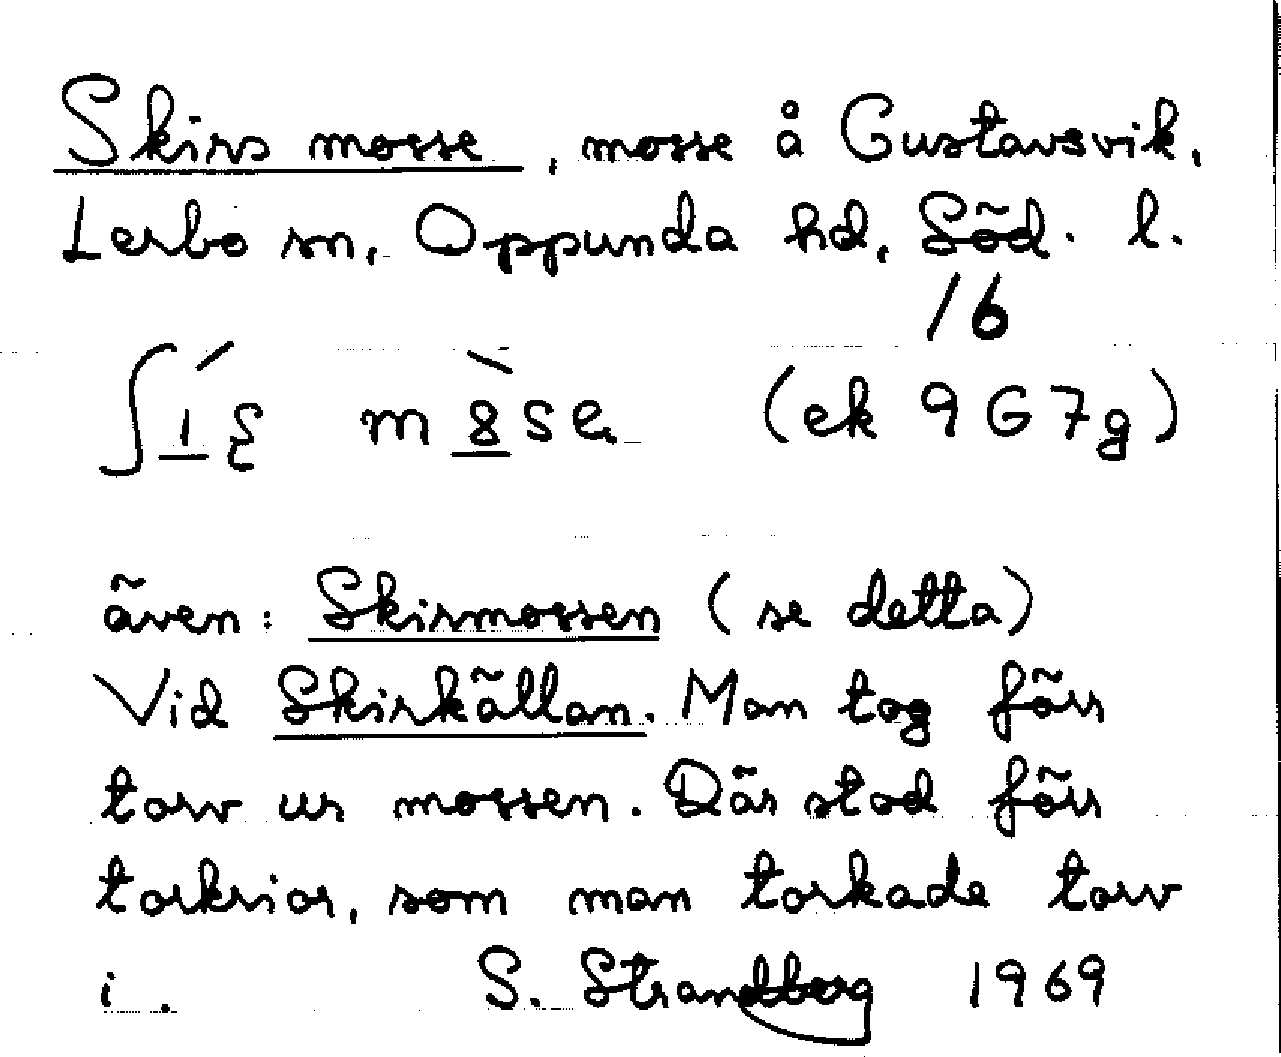 Skirs mosse, mosse å Gustavsvik,
Lerbo sn, Oppunda hd, Söd. l.
16
(ek 9G7g)
även: Skirmossen (se detta)
Vid Skirkällan. Man tog förr
torv ur mossen. Där stod förr
torkrior, som man torkade torv
i. S. Strandberg 1969